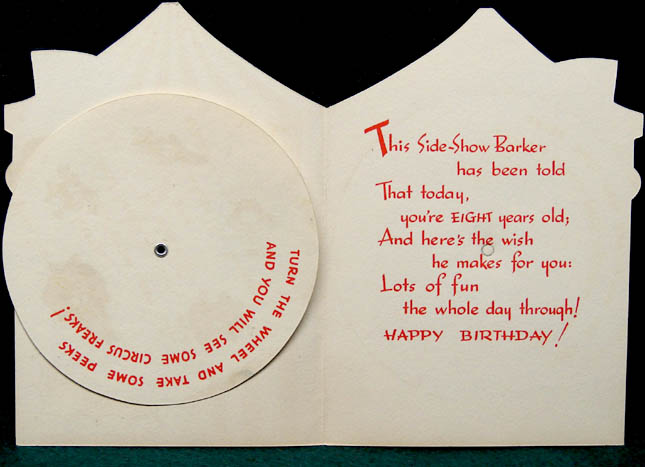 TURN THE WHEEL AND TAKE SOME PEEKS
AND YOU WILL SEE SOME CIRCUS FREAKS!
This Side-Show Barker
has been told
That today,
you're EIGHT years old;
And here's the wish
he makes for you:
Lots of fun
the whole day through!
HAPPY BIRTHDAY!